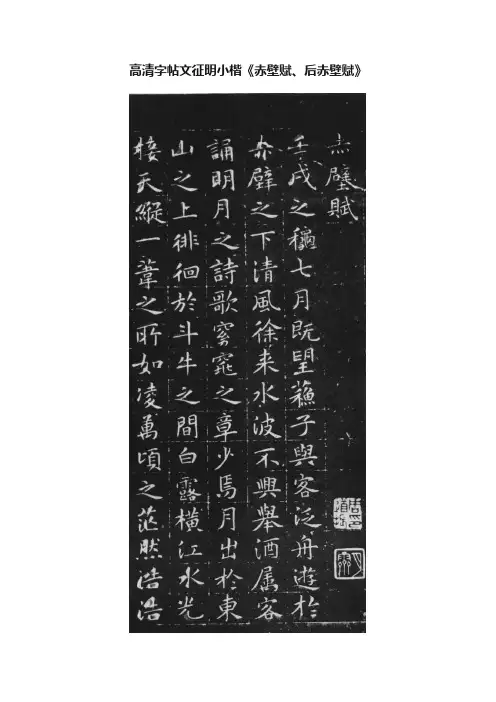 高清字帖文征明小楷《赤壁赋、后赤壁赋》
赤壁賦
壬戌之穐七月既望蘓子與客泛舟遊於
赤壁之下清風徐来水波不興舉酒属客
誦明月之詩歌窈窕之章少焉月出於東
山之上徘徊於斗牛之間白露橫江水光
接天縱一葦之所如凌萬頃之茫然浩浩